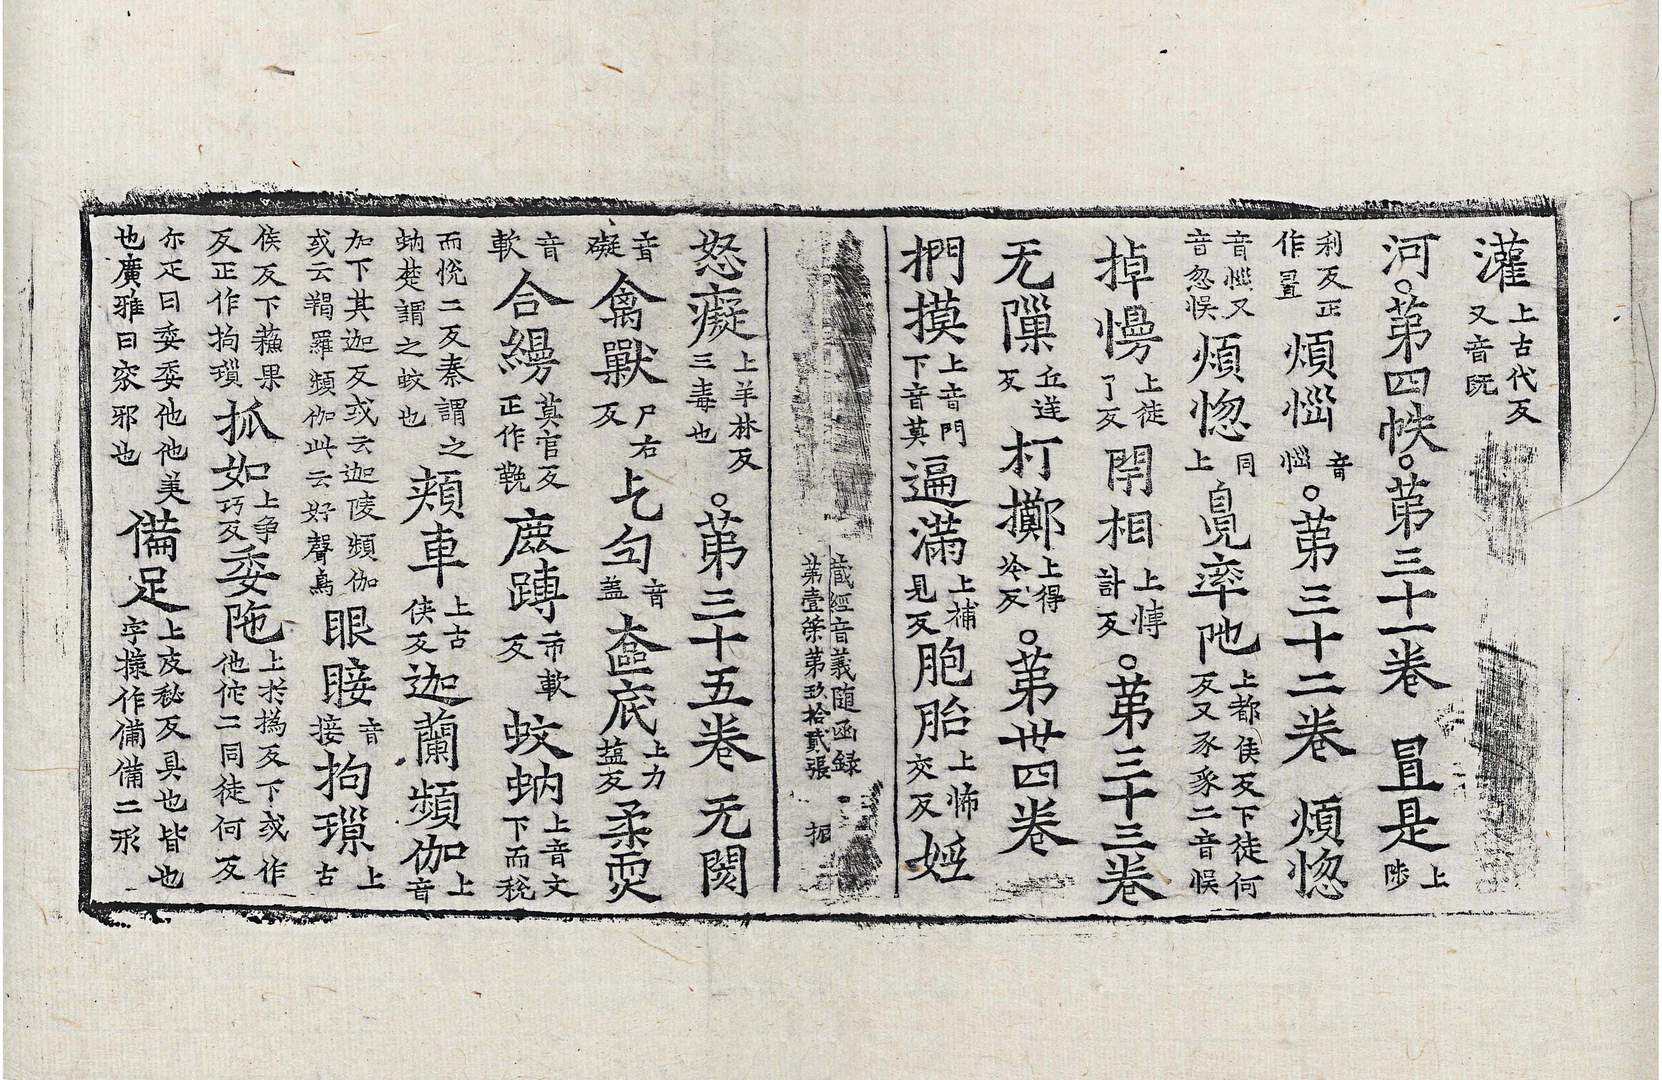 灌上古代反又音旣
河○第四帙○第三十一卷 罝是上陟
利反正作罝 煩惱音惱○第三十二卷 煩惚
音惱又音忽悮煩惚同上 臱率陁上都侯反下徒何反又豕豕二音悮
掉慢上徒了反 閇相上慱計反○第三十三卷
无隟丘逆反 打擲上得冷反○第卅四卷
捫摸上音門下音莫 遍滿上補見反 胞胎上怖交反 婬
藏經音義隨函錄
第壹筞第玖拾貳張
怒癡上羊林反三毒也○第三十五卷 无閡
音礙 禽獸尸右反 乞匃音盖 奩底上力盐反 柔耎
而恱二反秦謂之蚋楚謂之蚊也 頰車上古侠反 迦蘭頻伽上音
加下其迦反或云迦陵頻伽或云羯羅頻伽此云好聲鳥 眼睫音接 拘璅上古
侯反下蘓果反正作拘璅 抓如上争巧反 委陁上扵撝反下或作他佗二同徒何反
尒疋曰委委他他美也廣雅曰宎邪也 備足上皮秘反具也皆也字㨾作俻備二形